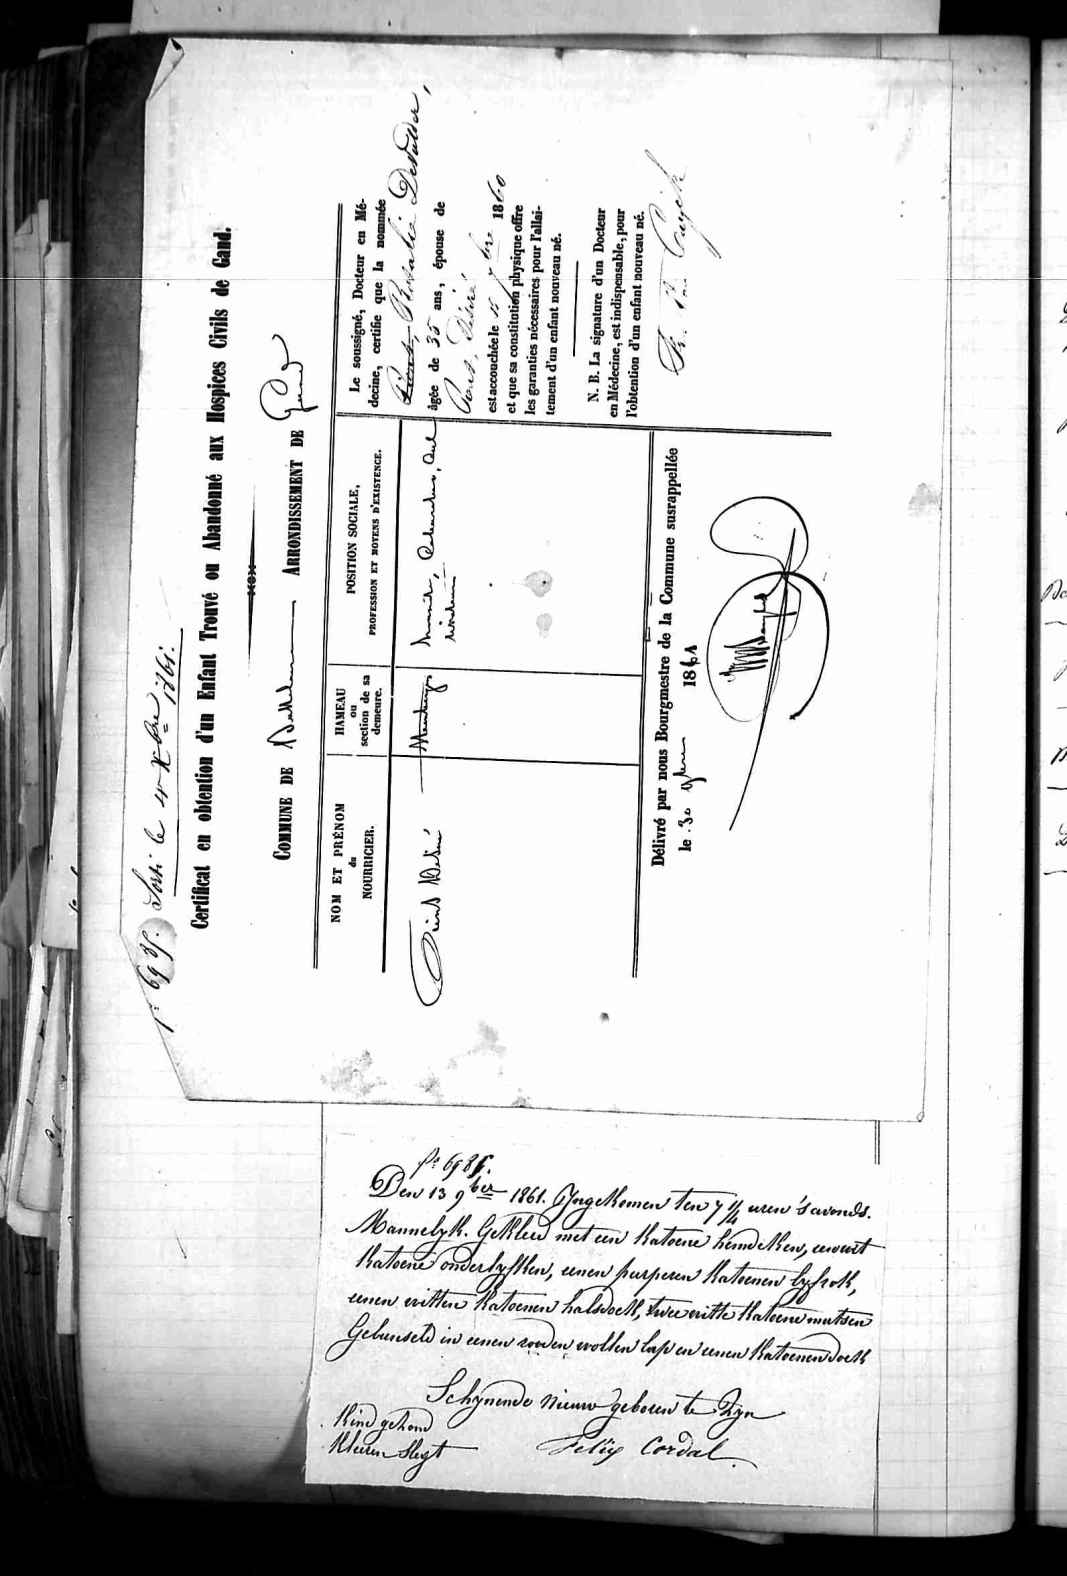 6985. Sorti le 4 Xbre 1861.
Certificat en obtention d'un Enfant Trouvé ou Abandonné aux Hospices Civils de Gand.
COMMUNE DE ARRONDISSEMENT DE Gand
NOM ET PRÉNOM
du
NOURRICIER.
HAMEAU
ou
section de sa
demeure.
POSITION SOCIALE,
PROFESSION ET MOYENS D'EXISTENCE.
Désiré
Le soussigné, Docteur en Mé-
decine, certifie que la nommée
Rosalie De Mulder,
âgée de 35 ans, épouse de
Désiré
est accouchée le 7bre 1860
et que sa constitution physique offre
les garanties nécessaires pour l'allai-
tement d'un enfant nouveau né.
N. B. La signature d'un Docteur
en Médecine, est indispensable, pour
l'obtention d'un enfant nouveau né.
Délivré par nous Bourgmestre de la Commune susrappellée
le 30 9bre 1861
6985.
Den 13 9ber 1861. Yngekomen ten 7 1/4 uren 's avonds.
Mannelyk. Gekleed met een katoene hemdeken, een wit
katoene onderlyfken, eenen purperen katoenen lyfrok,
eenen witten katoenen halsdoek, twee witte katoene mutsen
Gebunseld in eenen rooden wollen lap en eenen katoenen doek
Schynende nieuw geboren te zyn
Kind gezond
kleeren slegt
Felix Cordal.